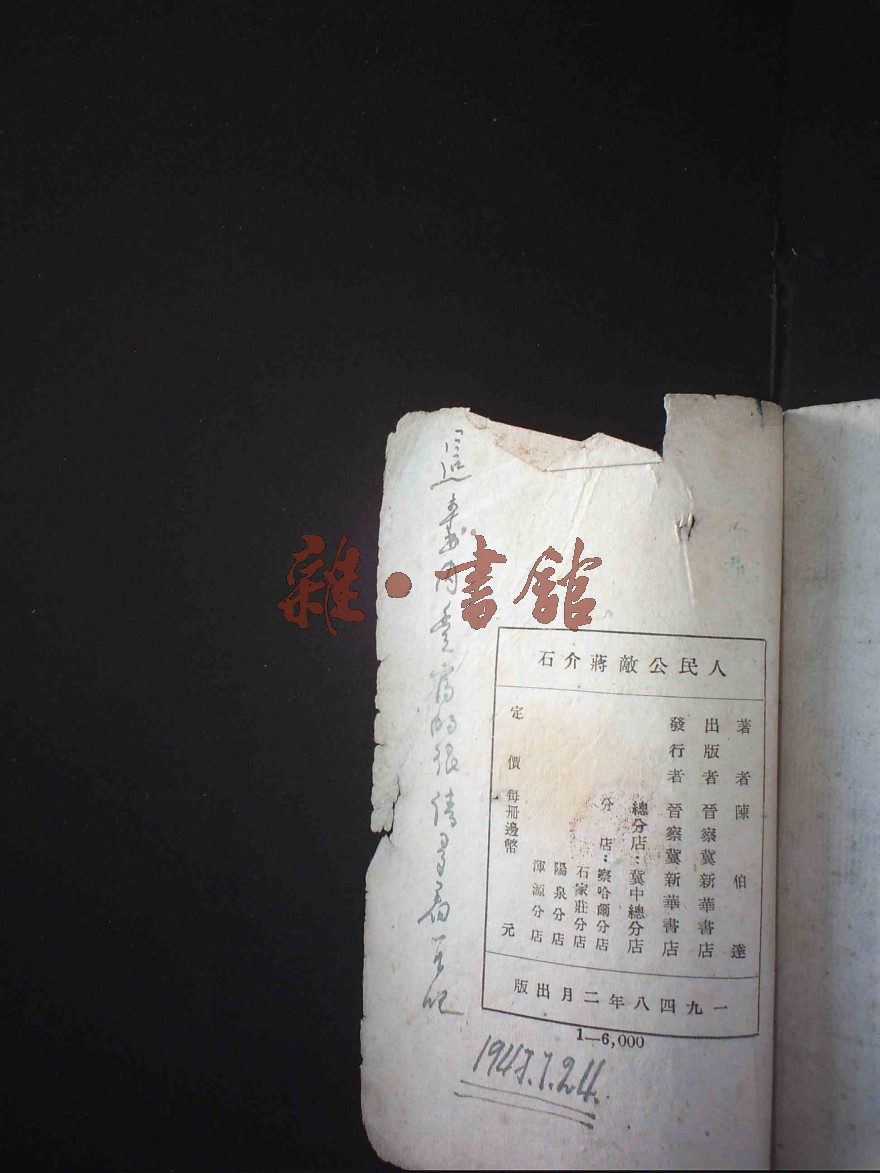 雜·書館
人民公敵蔣介石
著者 陳伯達
出版者 晉察冀新華書店
發行者 晉察冀新華書店
總分店：冀中總分店
分店：察哈爾分店
石家莊分店
陽泉分店
渾源分店
定價 每冊邊幣 元
一九四八年二月出版
1—6,000
這本書內
的很
吧